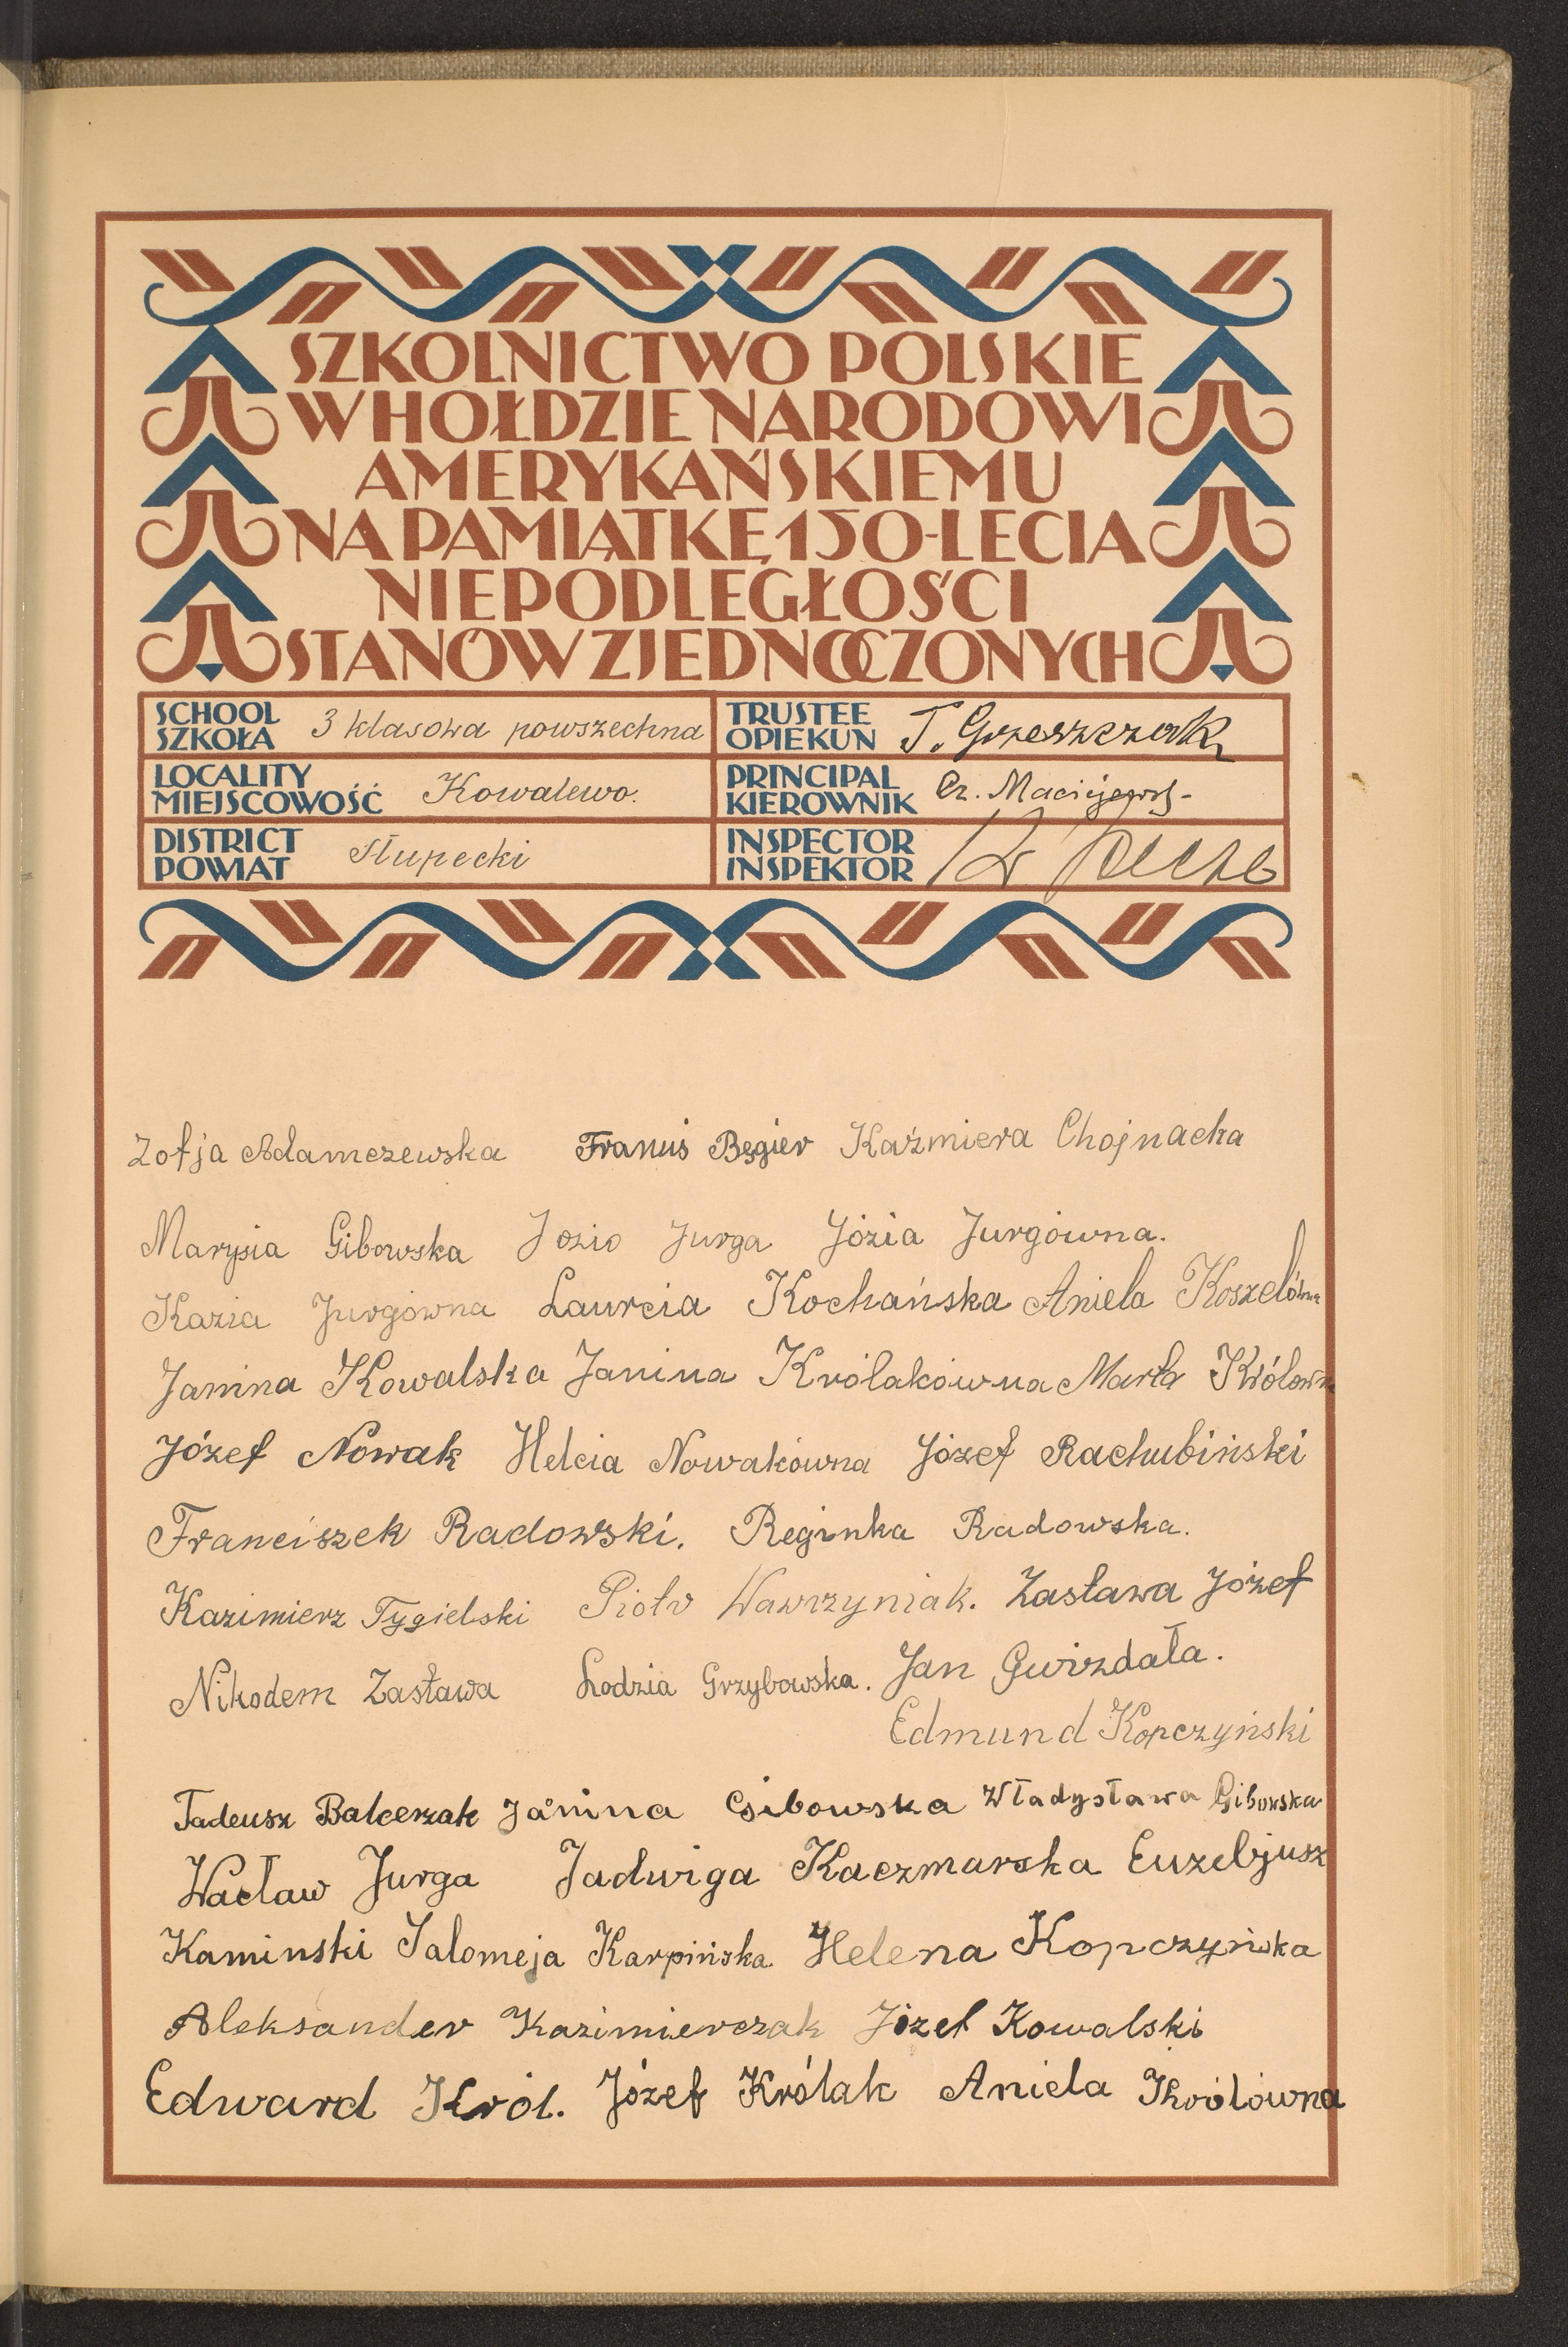 SZKOLNICTWO POLSKIE
W HOŁDZIE NARODOWI
AMERYKAŃSKIEMU
NA PAMIĄTKĘ 150-LECIA
NIEPODLEGŁOŚCI
STANÓW ZJEDNOCZONYCH
SCHOOL
SZKOŁA 3 klasowa powszechna
TRUSTEE
OPIEKUN T. Grzeszczak
LOCALITY
MIEJSCOWOŚĆ Kowalewo.
PRINCIPAL
KIEROWNIK Cz. Maciejewsk-
DISTRICT
POWIAT Słupecki
INSPECTOR
INSPEKTOR
Zofja Adamczewska Franuś Bęgier Kaźmiera Chojnacka
Marysia Gibowska Jozio Jurga Józia Jurgówna.
Kazia Jurgówna Laurcia Kochańska Aniela Koszelówna
Janina Kowalska Janina Królakówna Marta Królówna
Józef Nowak Helcia Nowakówna Józef Rachubiński
Franciszek Radowski. Reginka Radowska.
Kazimierz Tygielski Piotr Wawrzyniak. Zasława Józef
Nikodem Zasława Lodzia Grzybowska. Jan Gwizdała.
Edmund Kopczyński
Tadeusz Balcerzak Janina Gibowska Władysława Gibowska
Wacław Jurga Jadwiga Kaczmarska Euzebjusz
Kaminski Salomeja Karpińska Helena Kopczyńska
Aleksander Kazimierczak Józef Kowalski
Edward Król. Józef Królak Aniela Królówna